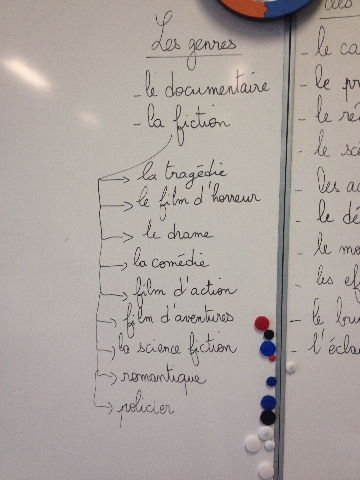 Les genres
- le documentaire
- la fiction
→ la tragédie
→ le film d'horreur
→ le drame
→ la comédie
→ film d'action
→ film d'aventures
→ la science fiction
→ romantique
→ policier
- le ca
- le pr
- le
- le
- Des
- le dé
- le mo
- les ef
- le bru
- l'écla